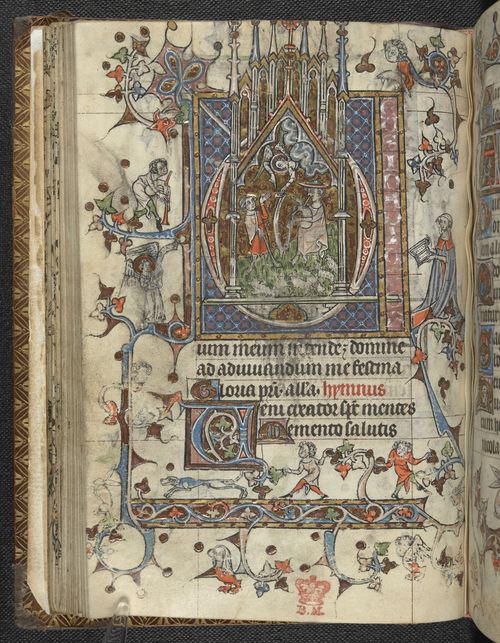 ium meum intende; domine
ad adiuuandum me festina
Gloria pri. alła. hymnus
Veni creator sp̄c mentes
Memento salutis
B.M